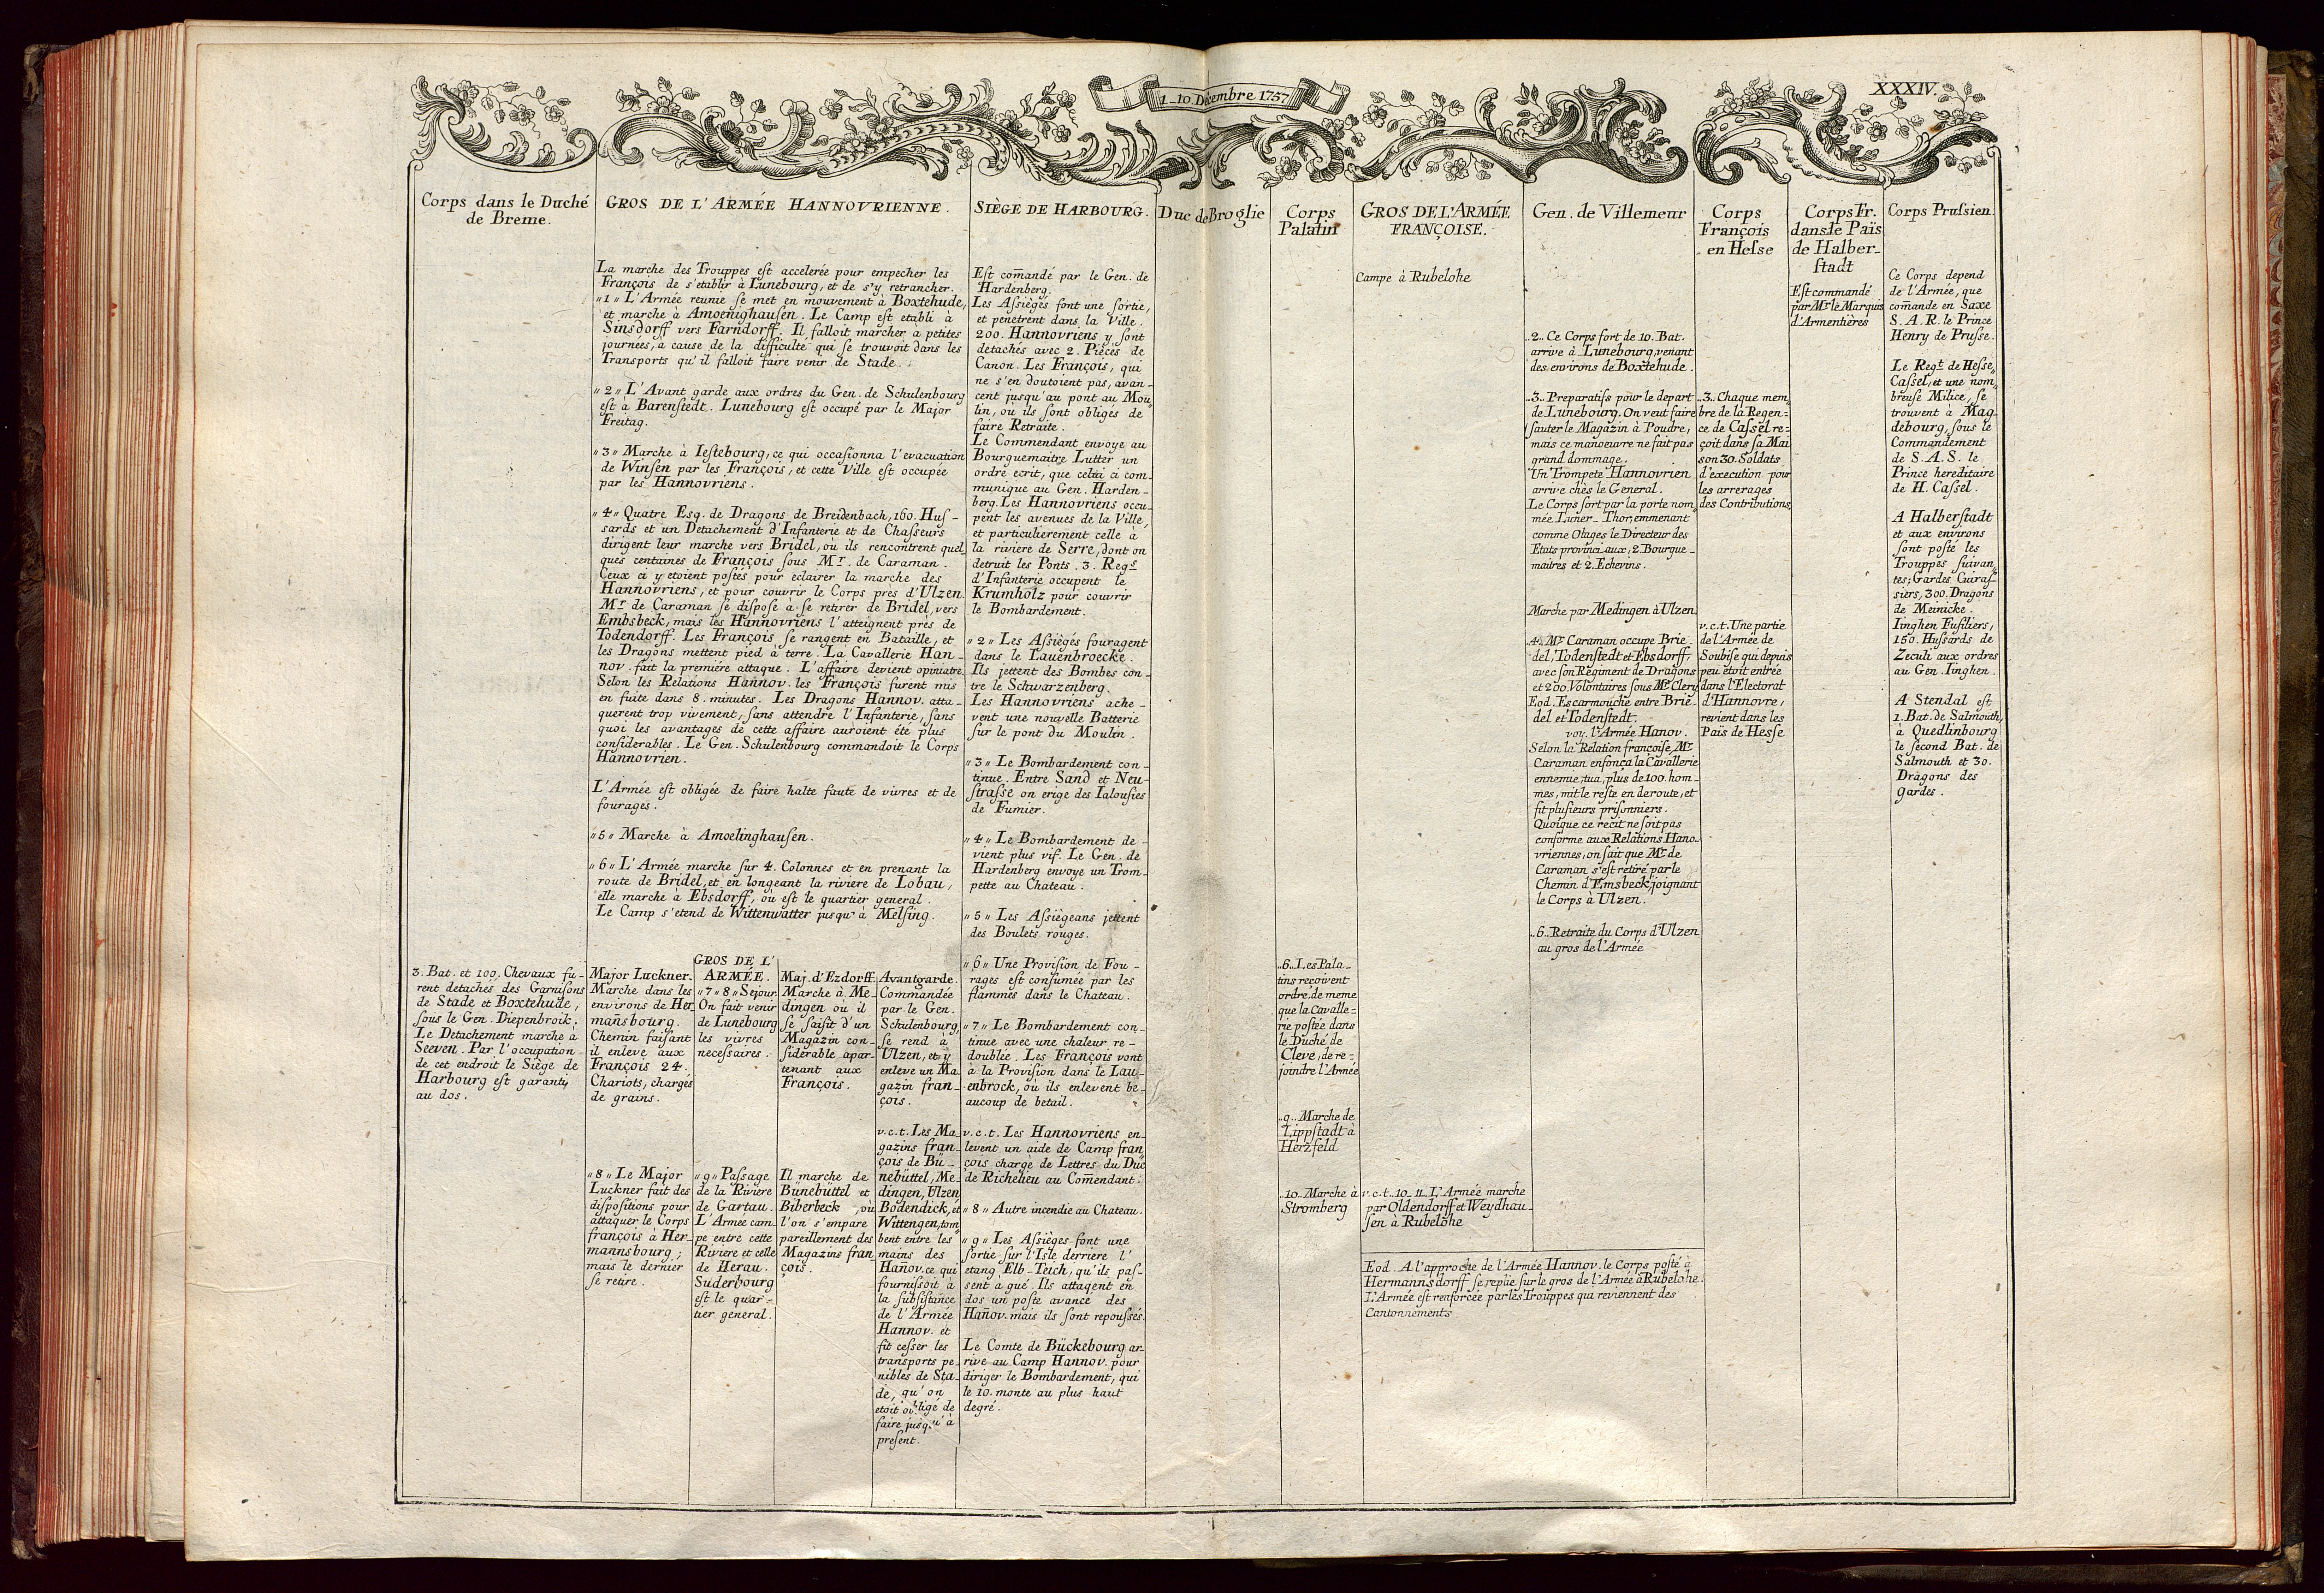 1_10. Décembre 1757
XXXIV.
Corps dans le Duché
de Breme.
GROS DE L'ARMÉE HANNOVRIENNE.
La marche des Trouppes eſt accelerée pour empecher les
François de s'etablir à Lunebourg, et de s'y retrancher.
„1„ L'Armée reunie ſe met en mouvement à Boxtehude,
et marche à Amoenighauſen. Le Camp eſt etabli à
Sinsdorff vers Farndorff. Il falloit marcher à petites
journées, à cause de la difficulté qui ſe trouvoit dans les
Transports qu'il falloit faire venir de Stade.
„2„ L'Avant garde aux ordres du Gen. de Schulenbourg
eſt à Barenſtedt. Lunebourg eſt occupé par le Major
Freitag.
„3„ Marche à Ieſtebourg, ce qui occaſionna l'evacuation
de Winſen par les François, et cette Ville eſt occupée
par les Hannovriens.
„4„ Quatre Esq. de Dragons de Breidenbach, 160. Huſ-
sards et un Detachement d'Infanterie et de Chaſseurs
dirigent leur marche vers Bridel, où ils rencontrent quel
ques centaines de François ſous Mr. de Caraman.
Ceux ci y etoient poſtés pour eclairer la marche des
Hannovriens, et pour couvrir le Corps près d'Ulzen.
Mr de Caraman ſe diſpoſe à ſe retirer de Bridel, vers
Embsbeck, mais les Hannovriens l'atteignent près de
Todendorff. Les François ſe rangent en Bataille, et
les Dragons mettent pied à terre. La Cavallerie Han-
nov. fait la première attaque. L'affaire devient opiniatre.
Selon les Relations Hannov. les François furent mis
en fuite dans 8. minutes. Les Dragons Hannov. atta-
querent trop vivement, ſans attendre l'Infanterie, ſans
quoi les avantages de cette affaire auroient été plus
conſiderables. Le Gen. Schulenbourg commandoit le Corps
Hannovrien.
L'Armée eſt obligée de faire halte faute de vivres et de
fourages.
„5„ Marche à Amoelinghauſen.
„6„ L'Armée marche ſur 4. Colonnes et en prenant la
route de Bridel, et en longeant la riviere de Lobau,
elle marche à Ebsdorff, où eſt le quartier general.
Le Camp s'etend de Wittenwatter jusqu'à Melſing.
3. Bat. et 100. Chevaux fu-
rent detachés des Garniſons
de Stade et Boxtehude,
ſous le Gen. Diepenbroik.
Le Detachement marche à
Seeven. Par l'occupation
de cet endroit le Siège de
Harbourg eſt garanti
au dos.
Major Luckner.
Marche dans les
environs de Her
mañsbourg.
Chemin faiſant
il enleve aux
François 24.
Chariots, chargés
de grains.
„8„ Le Major
Luckner fait des
diſpoſitions pour
attaquer le Corps
françois à Her-
mannsbourg;
mais le dernier
ſe retire.
GROS DE L'
ARMÉE.
„7„8„ Sejour.
On fait venir
de Lunebourg
les vivres
neceſsaires.
„9„ Paſsage
de la Riviere
de Gartau.
L'Armée cam
pe entre cette
Riviere et celle
de Herau.
Suderbourg
eſt le quar-
tier general.
Maj. d'Ezdorff.
Marche à Me-
dingen où il
ſe ſaiſit d'un
Magazin con-
ſiderable apar-
tenant aux
François.
Il marche de
Bünebüttel et
Biberbeck, où
l'on s'empare
pareillement des
Magazins fran
çois.
Avantgarde.
Commandée
par le Gen.
Schulenbourg,
ſe rend à
Ulzen, et y
enleve un Ma
gazin fran-
çois.
v.c.t. Les Ma-
gazins fran-
çois de Bü-
nebüttel, Me-
dingen, Ulzen
Bodendick, et
Wittengen, tom
bent entre les
mains des
Hañov. ce qui
fourniſsoit à
la ſubſiſtañce
de l'Armée
Hannov. et
fit ceſser les
transports pe-
nibles de Sta-
de, qu'on
etoit obligé de
faire jusqu'à
preſent.
SIÈGE DE HARBOURG.
Eſt com̄andé par le Gen. de
Hardenberg.
Les Aſsiégés font une ſortie,
et penetrent dans la Ville.
200. Hannovriens y ſont
detachés avec 2. Pièces de
Canon. Les François, qui
ne s'en doutoient pas, avan-
cent jusqu'au pont au Mou
lin, où ils ſont obligés de
faire Retraite.
Le Commendant envoye au
Bourguemaitre Lutter un
ordre ecrit, que celui ci com
munique au Gen. Harden-
berg. Les Hannovriens occu-
pent les avenues de la Ville,
et particulierement celle à
la riviere de Serre, dont on
detruit les Ponts. 3. Regs
d'Infanterie occupent le
Krumholz pour couvrir
le Bombardement.
„2„ Les Aſsiégés fouragent
dans le Lauenbroecke.
Ils jettent des Bombes con-
tre le Schwarzenberg.
Les Hannovriens ache-
vent une nouvelle Batterie
ſur le pont du Moulin.
„3„ Le Bombardement con-
tinue. Entre Sand et Neu-
ſtraſse on erige des Ialouſies
de Fumier.
„4„ Le Bombardement de-
vient plus vif. Le Gen. de
Hardenberg envoye un Trom-
pette au Chateau.
„5„ Les Aſsiègeans jettent
des Boulets rouges.
„6„ Une Proviſion de Fou-
rages eſt conſumée par les
flammes dans le Chateau.
„7„ Le Bombardement con-
tinue avec une chaleur re-
doublée. Les François vont
à la Proviſion dans le Lau-
enbrock, où ils enlevent be-
aucoup de betail.
v.c.t. Les Hannovriens en-
levent un aide de Camp fran
çois chargé de Lettres du Duc
de Richelieu au Com̄endant.
„8„ Autre incendie au Chateau.
„9„ Les Aſsiégés font une
ſortie ſur l'Isle derriere l'
etang Elb-Teich, qu'ils paſ-
sent à gué. Ils attaqent en
dos un poſte avancé des
Hañov. mais ils ſont repouſsés.
Le Comte de Bückebourg ar-
rive au Camp Hannov. pour
diriger le Bombardement, qui
le 10. monte au plus haut
degré.
Duc de Broglie
Corps
Palatin
„6„ Les Pala-
tins reçoivent
ordre, de meme
que la Cavalle-
rie poſtée dans
le Duché de
Cleve, de re-
joindre l'Armée
„9„ Marche de
Lippſtadt à
Herzfeld
„10„ Marche à
Stromberg
GROS DE L'ARMÉE
FRANÇOISE.
Campe à Rubelohe
v.c.t. 10_11. L'Armée marche
par Oldendorff et Weydhau-
ſen à Rubelohe
Eod. A l'approche de l'Armée Hannov. le Corps poſté à
Hermannsdorff ſe replie ſur le gros de l'Armée à Rubelohe.
L'Armée eſt renforcée par les Trouppes qui reviennent des
Cantonnements
Gen. de Villemeur
„2„ Ce Corps fort de 10. Bat.
arrive à Lunebourg, venant
des environs de Boxtehude.
„3„ Preparatifs pour le depart
de Lunebourg. On veut faire
ſauter le Magazin à Poudre,
mais ce manoeuvre ne fait pas
grand dommage.
Un Trompete Hannovrien
arrive chés le General.
Le Corps ſort par la porte nom
mée Luner-Thor, emmenant
comme Otages le Directeur des
Etats provinciaux, 2. Bourgue-
maitres et 2. Echevins.
Marche par Medingen à Ulzen
„4„ Mr. Caraman occupe Brie-
del, Todenſtedt et Ebsdorff,
avec ſon Regiment de Dragons
et 200. Volontaires ſous Mr. Clery
Eod. Escarmouche entre Brie-
del et Todenſtedt.
voy. l'Armée Hanov.
Selon la Relation françoiſe, Mr.
Caraman enfonça la Cavallerie
ennemie, tua, plus de 100. hom-
mes, mit le reſte en deroute, et
fit pluſieurs priſonniers.
Quoique ce recit ne ſoit pas
conforme aux Relations Hano-
vriennes, on ſait que Mr. de
Caraman s'eſt retiré par le
Chemin d'Emsbeck, joignant
le Corps à Ulzen.
„6„ Retraite du Corps d'Ulzen
au gros de l'Armée
Corps
François
en Heſse
„3„ Chaque mem„
bre de la Regen-
ce de Caſsel re-
çoit dans ſa Mai
son 30. Soldats
d'execution pour
les arrerages
des Contributions
v.c.t. Une partie
de l'Armée de
Soubiſe qui depuis
peu étoit entrée
dans l'Electorat
d'Hannovre,
revient dans les
Païs de Heſse
Corps Fr.
dans le Païs
de Halber-
ſtadt
Eſt commandé
par Mr. le Marquis
d'Armentières
Corps Pruſsien.
Ce Corps depend
de l'Armée, que
com̄ande en Saxe
S. A. R. le Prince
Henry de Pruſse.
Le Regt. de Heſse,
Caſsel, et une nom„
breuſe Milice, ſe
trouvent à Mag-
debourg, ſous le
Commandement
de S. A. S. le
Prince hereditaire
de H. Caſsel.
A Halberſtadt
et aux environs
ſont poſté les
Trouppes ſuivan„
tes; Gardes Cuiraſ-
siers, 300. Dragons
de Meinicke.
Iinghen Fuſiliers,
150. Huſsards de
Zeculi aux ordres
au Gen. Iinghen.
A Stendal eſt
1. Bat. de Salmouth,
à Quedlinbourg
le ſecond Bat. de
Salmouth et 30.
Dragons des
gardes.